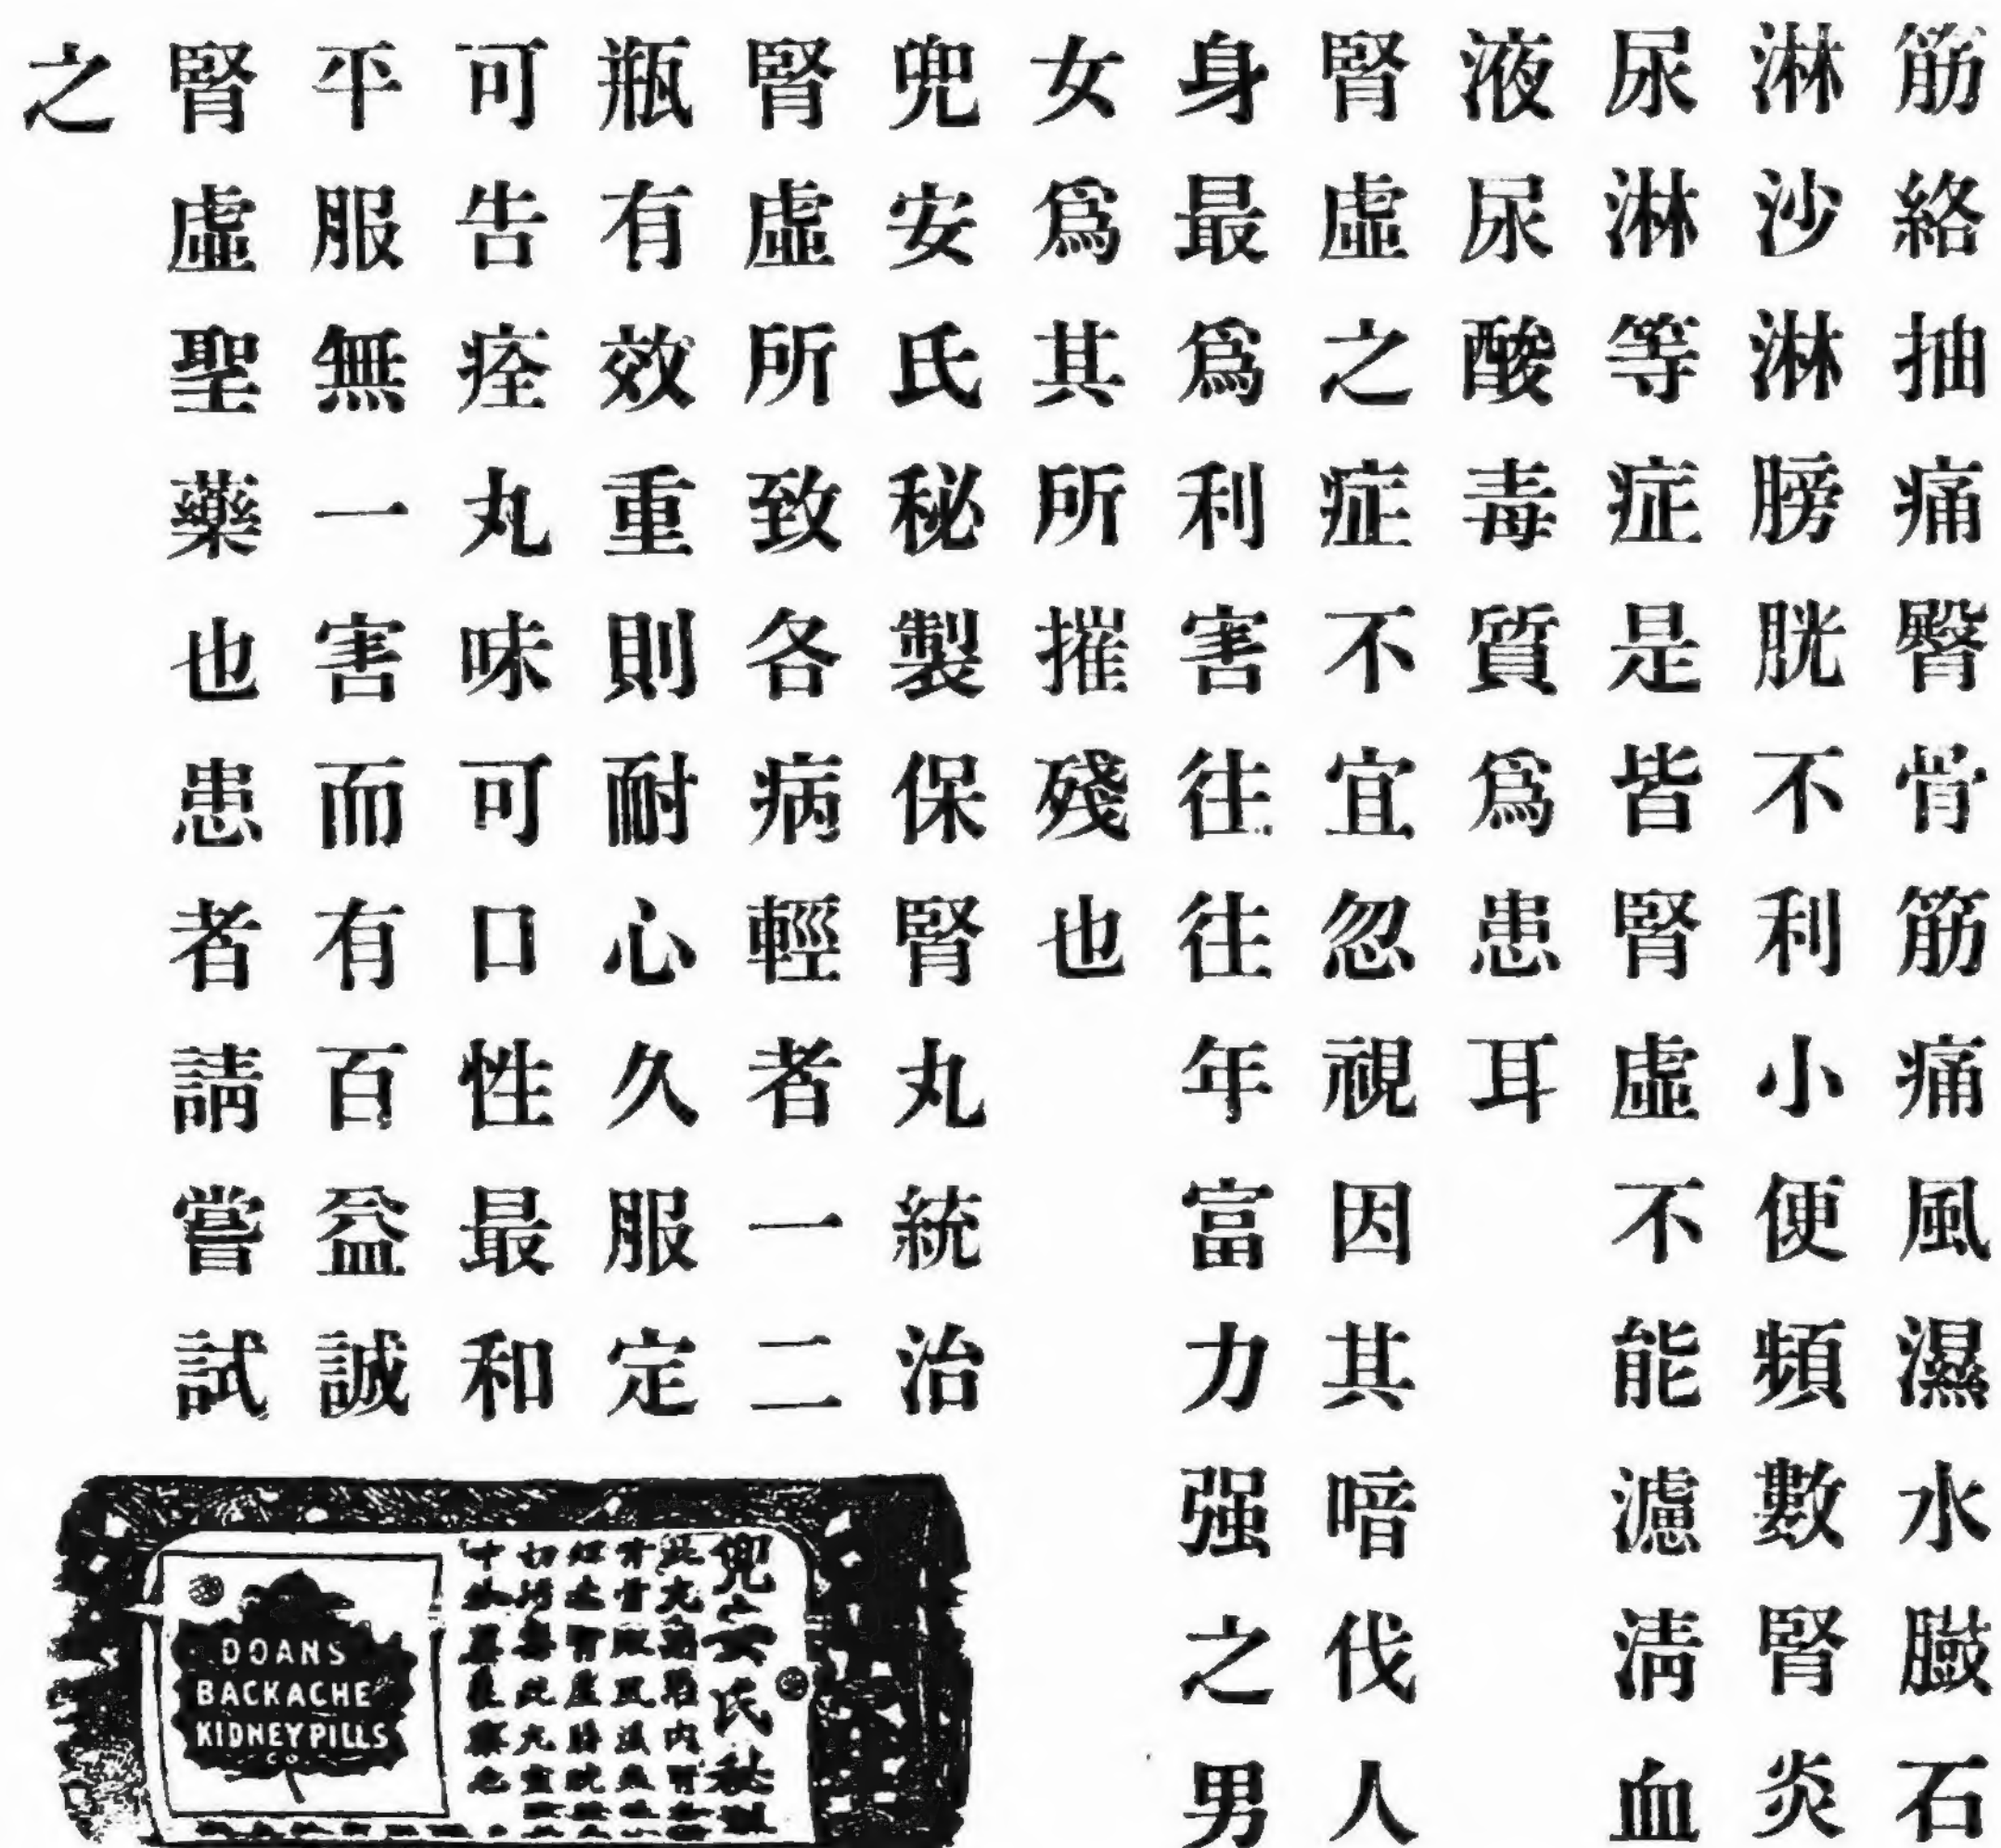 筋絡抽痛臀骨筋痛風濕水臌石
淋沙淋膀胱不利小便頻數腎炎
尿淋等症是皆腎虛不能濾淸血
液尿酸毒質爲患耳
腎虛之症不宜忽視因其喑伐人
身最爲利害往往年富力强之男
女爲其所摧殘也
兜安氏秘製保腎丸統治
腎虛所致各病輕者一二
瓶有效重則耐心久服定
可告痊丸味可口性最和
平服無一害而有百益誠
腎虛聖藥也患者請嘗試
之
兜安氏秘
DOANS
BACKACHE
KIDNEY PILLS
CO